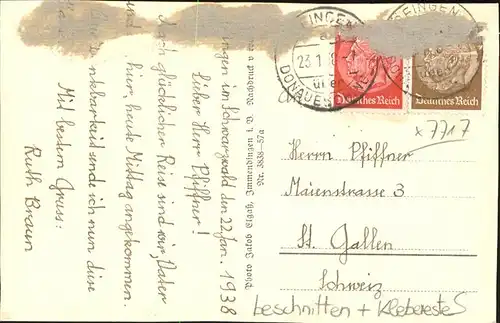 ingen im Schwarzwald den 22. Jan. 1938
Lieber Herr Pfiffner!
Nach glücklicher Reise sind wir, Vater
hier, heute Mittag angekommen.
nkbarkeit sende ich nun diese
Mit bestem Gruss:
Ruth Braun
Photoh. Jakob Immendingen i. B. Nachdruck
Nr. 3838-57a
SINGEN
23.1.
DONAUES
Deutsches Reich
Deutsches Reich
x7717
Herrn Pfiffner
Maienstrasse 3
St. Gallen
Schweiz
beschnitten + Kleberreste S